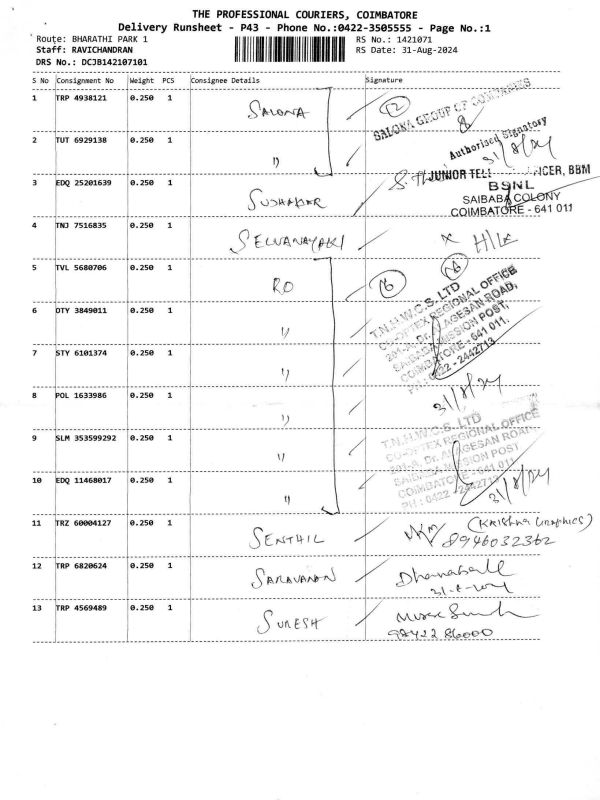 THE PROFESSIONAL COURIERS, COIMBATORE
Delivery Runsheet - P43 - Phone No.:0422-3505555 - Page No.:1
Route: BHARATHI PARK 1
RS No.: 1421071
Staff: RAVICHANDRAN
RS Date: 31-Aug-2024
DRS No.: DCJB142107101
S No Consignment No Weight PCS Consignee Details Signature
1 TRP 4938121 0.250 1 SALONA 12
SALONA GROUP OF COMPANIES
Authorised Signatory
31/8/24
2 TUT 6929138 0.250 1 "
3 EDQ 25201639 0.250 1 SUDHAKAR
JUNIOR TEL ICER, BBM
BSNL
SAIBABA COLONY
COIMBATORE - 641 011
4 TNJ 7516835 0.250 1 SELVANAYAKI
5 TVL 5680706 0.250 1 RO
T.N.H.W.C.S. LTD
CO-OPTEX REGIONAL OFFICE
201-A, Dr. ALAGESAN ROAD,
SAIBABA MISSION POST,
COIMBATORE - 641 011.
PH : 0422 - 2442713
31/8/24
6 OTY 3849011 0.250 1 "
7 STY 6101374 0.250 1 "
8 POL 1633986 0.250 1 "
9 SLM 353599292 0.250 1 "
T.N.H.W.C.S. LTD
CO-OPTEX REGIONAL OFFICE
201-A, Dr. ALAGESAN ROAD
SAIBABA MISSION POST
COIMBATORE - 641 011
PH : 0422 - 2442713
31/8/24
10 EDQ 11468017 0.250 1 "
11 TRZ 60004127 0.250 1 SENTHIL (Krishna Graphics)
8946032362
12 TRP 6820624 0.250 1 SARAVANAN
13 TRP 4569489 0.250 1 SURESH
98422 86000